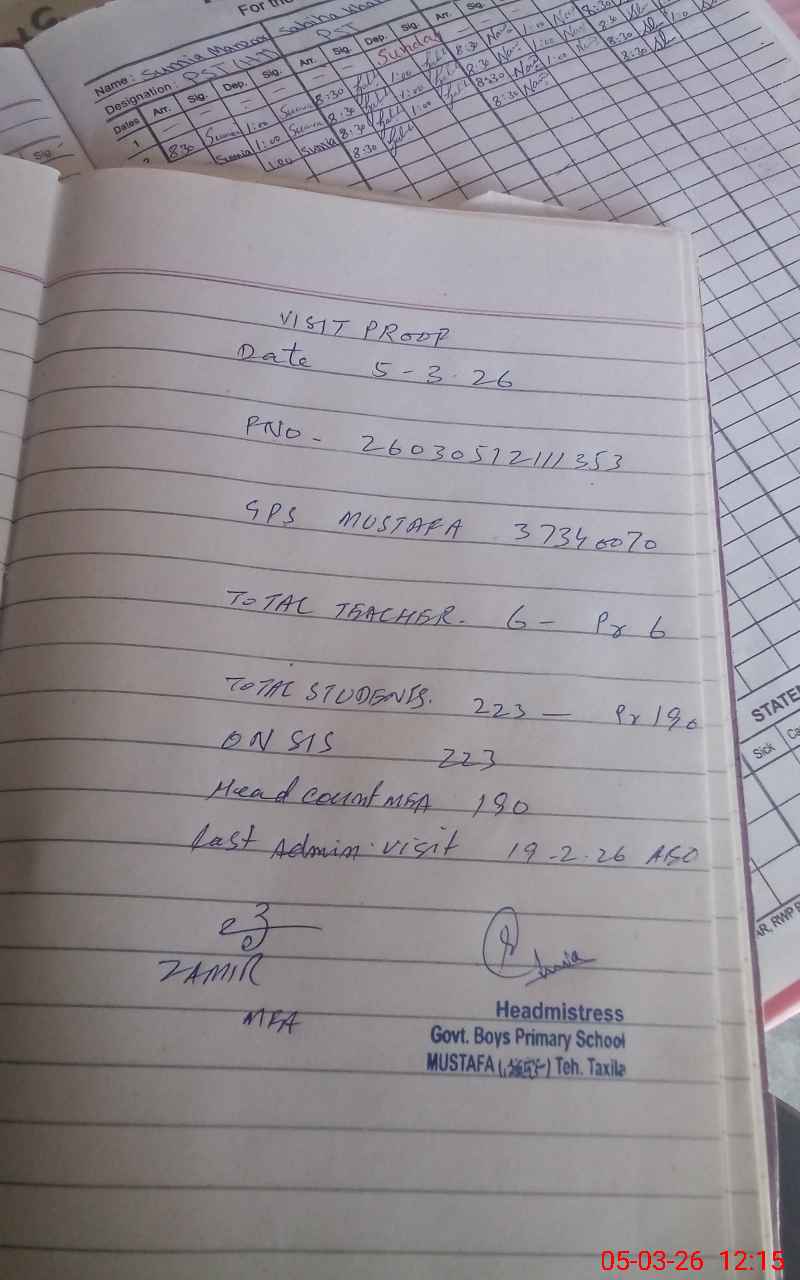 For the
Name: Sumia
Designation: PST
PST
Dates Arr. Sig. Dep. Sig. Arr. Sig. Dep. Sig. Arr. Sig.
Sunday
1
8:30 1:00 8:30 1:00 8:30 1:00 8:30
1:00 8:30 1:00 8:30 1:00
8:30 1:00 8:30 1:00
8:30 8:30 8:30
Sig.
VISIT PROOF
Date 5-3-26
PNO- 26030512111353
GPS MUSTAFA 37340070
TOTAL TEACHER. 6 - Pr 6
TOTAL STUDENTS. 223 - Pr 190
ON SIS 223
Head count MEA 190
Last Admin. visit 19-2-26 AEO
ZAMIR
MEA
Headmistress
Govt. Boys Primary School
MUSTAFA Teh. Taxila
STATE
Sick
AR, RWP
05-03-26 12:15